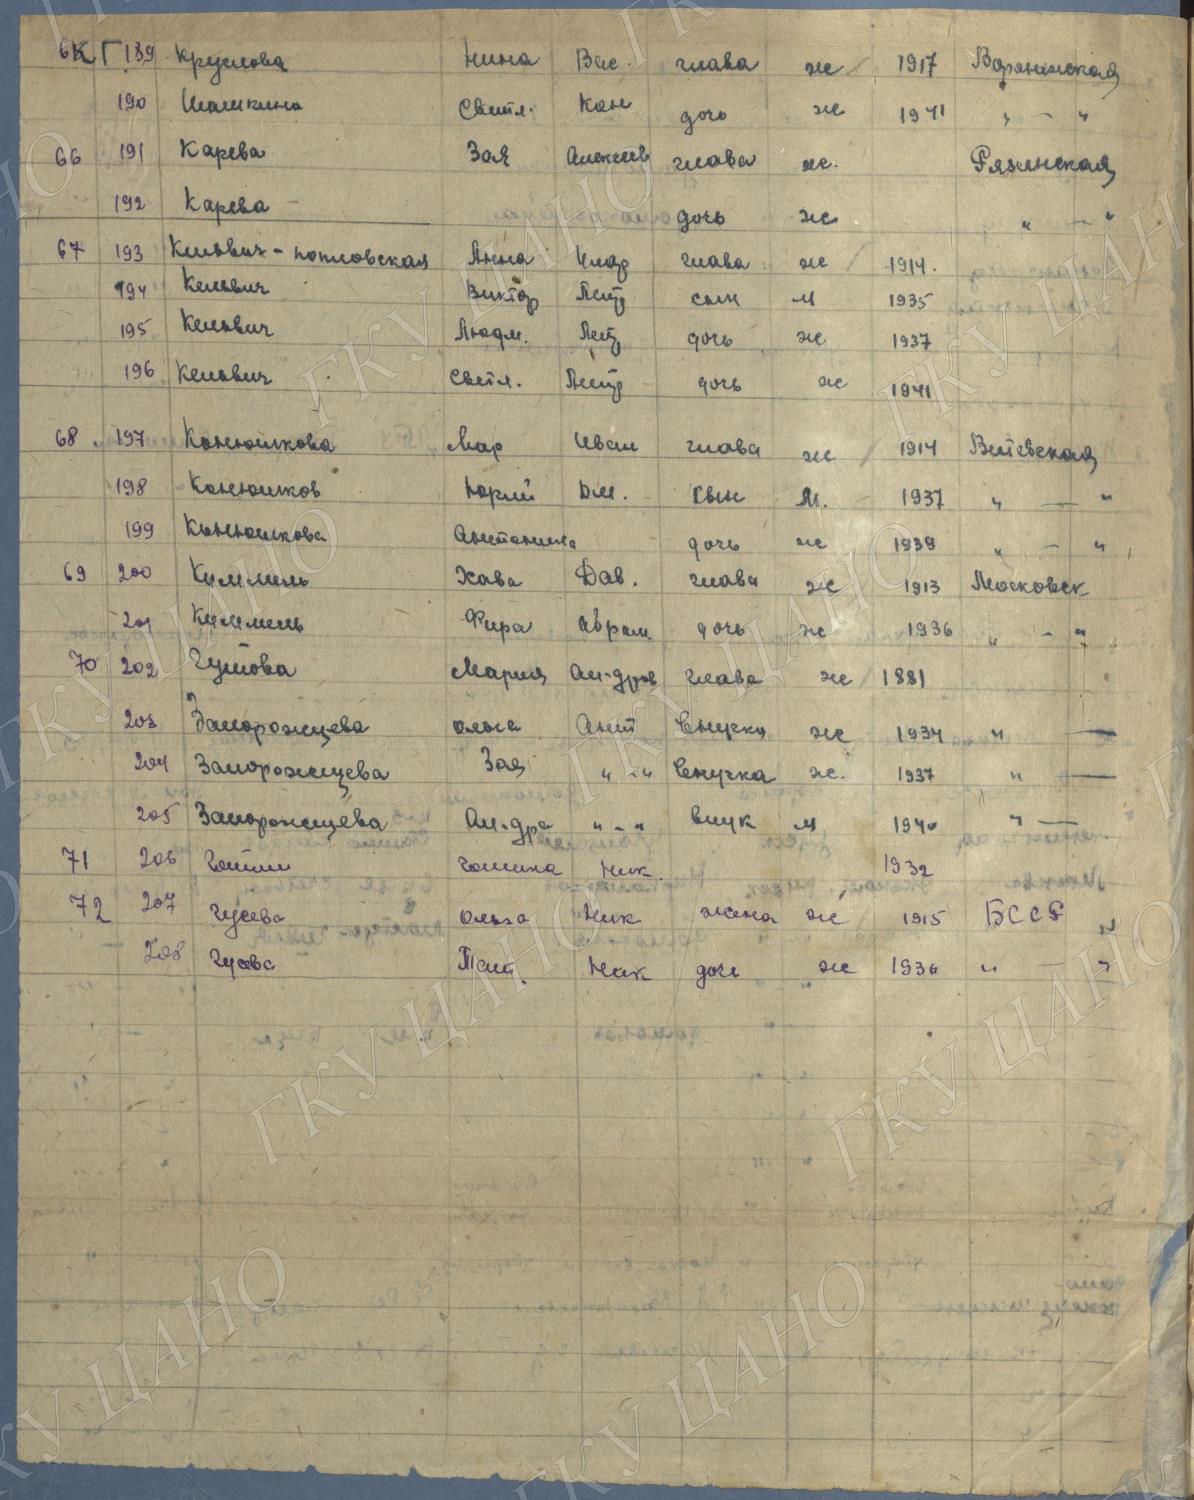 6К Г 189 Круглова Нина Вас. глава ж 1917 Воронежская
190 Шашкина Светл. Кон дочь ж 1941 „ — "
66 191 Карева Зоя Алексеев глава ж. Рязанская
192 Карева дочь ж „ — "
67 193 Анна глава ж 1914.
194 Кельвич Виктор Петр сын м 1935
195 Кельвич Людм. Петр дочь ж 1937
196 Кельвич Светл. Петр дочь ж 1941
68 197 Конюшкова Мар Иван глава ж 1914 Витебская
198 Конюшков Юрий Дм. сын м. 1937 „ — "
199 Конюшкова Антонина дочь ж 1939 „ — "
69 200 Киммель Хава Дав. глава ж 1913 Московск
201 Киммель Фира Абрам. дочь ж 1936 „ - "
70 202 Мария Ал-дров глава ж 1881
203 Запорожцева Ольга Анат Внучка ж 1934 " —
204 Запорожцева Зоя " - " Внучка ж. 1937 " —
205 Запорожцева Ал-др " - " внук м 1940 " —
71 206 Галина Ник. 1932
72 207 Гусева Ольга Ник жена ж 1915 БССР
208 Гусева Ник дочь ж 1936 " — "
ГКУ ЦАНО